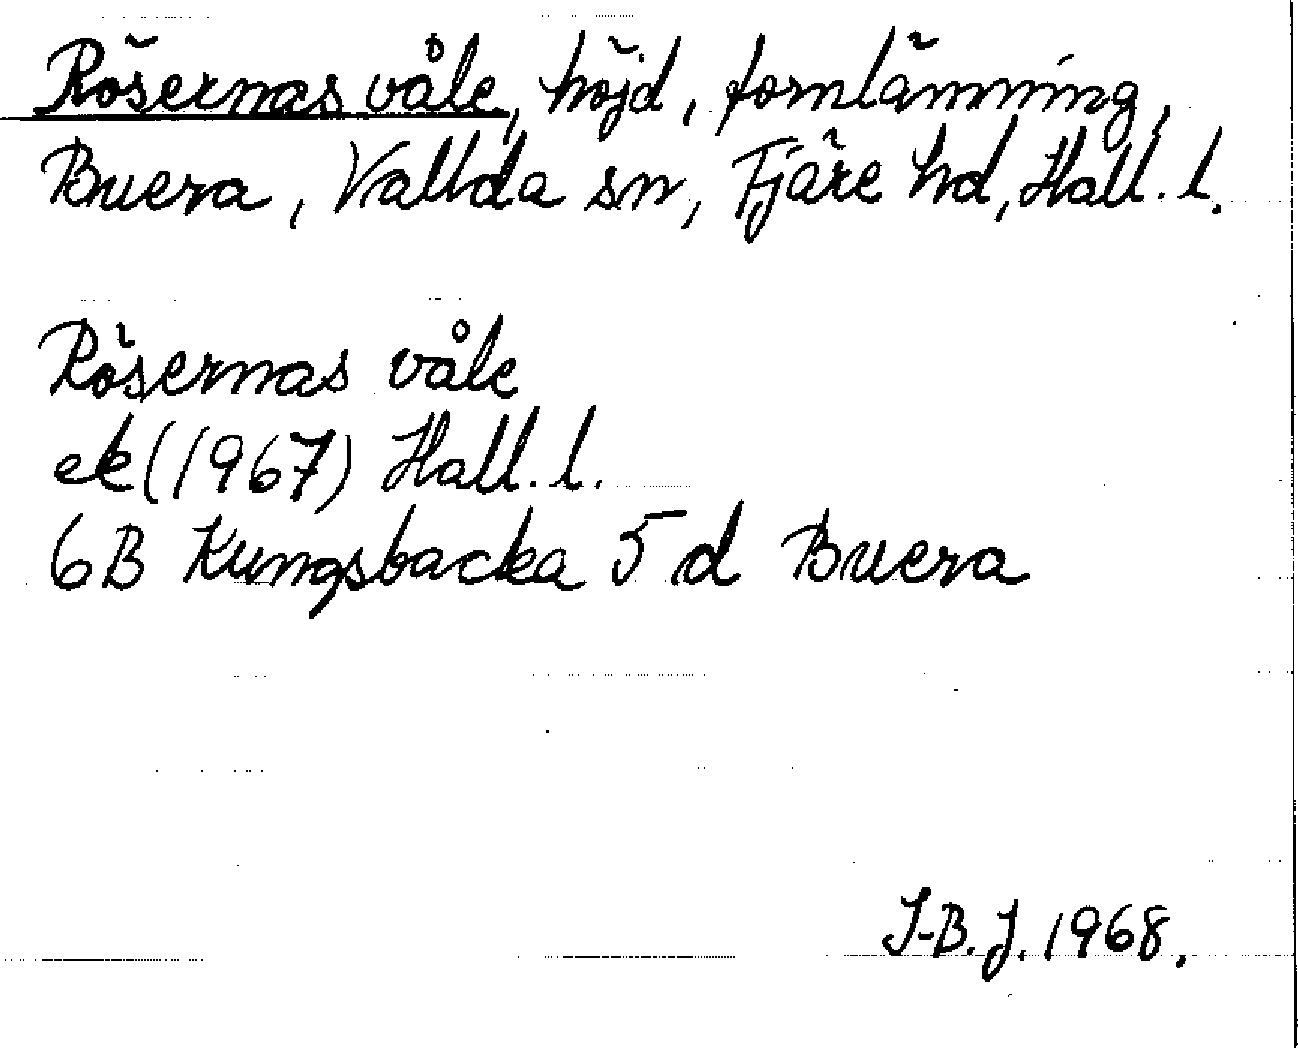 Rösernas våle, höjd, fornlämning,
Buera, Vallda sn, Fjäre hd, Hall. l.
Rösernas våle
ek (1967) Hall. l.
6B Kungsbacka 5 d Buera
I-B. J. 1968.